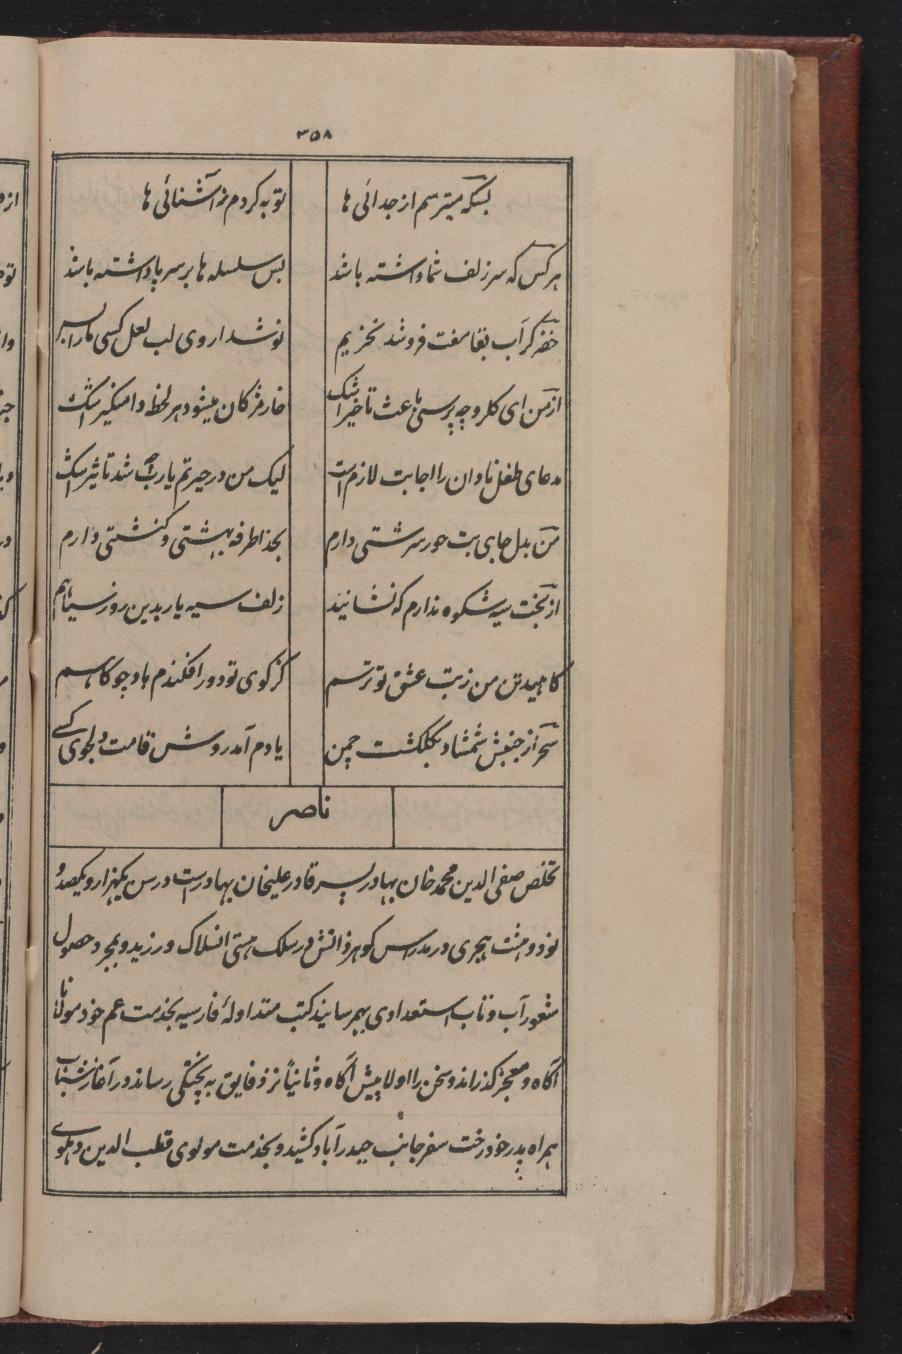 ۳۵۸
بسکه میترسم از جدائی ها توبه کردم ز آشنائی ها
هر کس که سر زلف شما داشته باشد بس سلسله ها بر سر پا داشته باشد
خضر گر آب بقا مفت فروشد نخریم نوشداروی لب لعل کسی ما را بس
از من ای گلرو چه پرسی باعث تاخیر اشک خار مژگان میشود هر لحظه دامنگیر اشک
مدعای طفل نادان را اجابت لازم است لیک من در حیرتم یارب شد تاثیر اشک
من بدل جای بت حور سرشتی دارم بخدا طرفه بهشتی و کنشتی دارم
از بخت سیه شکوه ندارم که نشانید زلف سیه یار بدین روز سیاهم
کاهیده تن من ز تب عشق تو ترسم کز کوی تو دور افکندم باد چو کاهم
سحر از جنبش شمشاد بگلگشت چمن یادم آمد روش قامت دلجوی کسے
ناصر
تخلص صفی الدین محمد خان بهادر پسر قادر علیخان بهادر است در سن یکهزار و یکصد و
نود و هشت هجری در مدراس گوهر ذاتش در سلک هستی انسلاک ورزید و بمجرد حصول
شعور آب و تاب استعدادی بهم رسانید کتب متداولهٔ فارسیه بخدمت عم خود مولانا
آگاه و معجز گذراند و سخن را اولا پیش آگاه و ثانیاً نزد فایق به پختگی رساند در آغاز شباب
همراه پدر خود رخت سفر جانب حیدرآباد کشید و بخدمت مولوی قطب الدین دهلوی